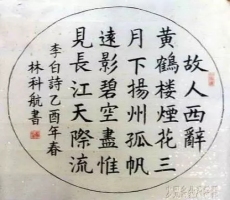 故人西辭
黄鶴樓煙花三
月下揚州孤帆
遠影碧空盡惟
見長江天際流
李白詩乙酉年春
林科航書